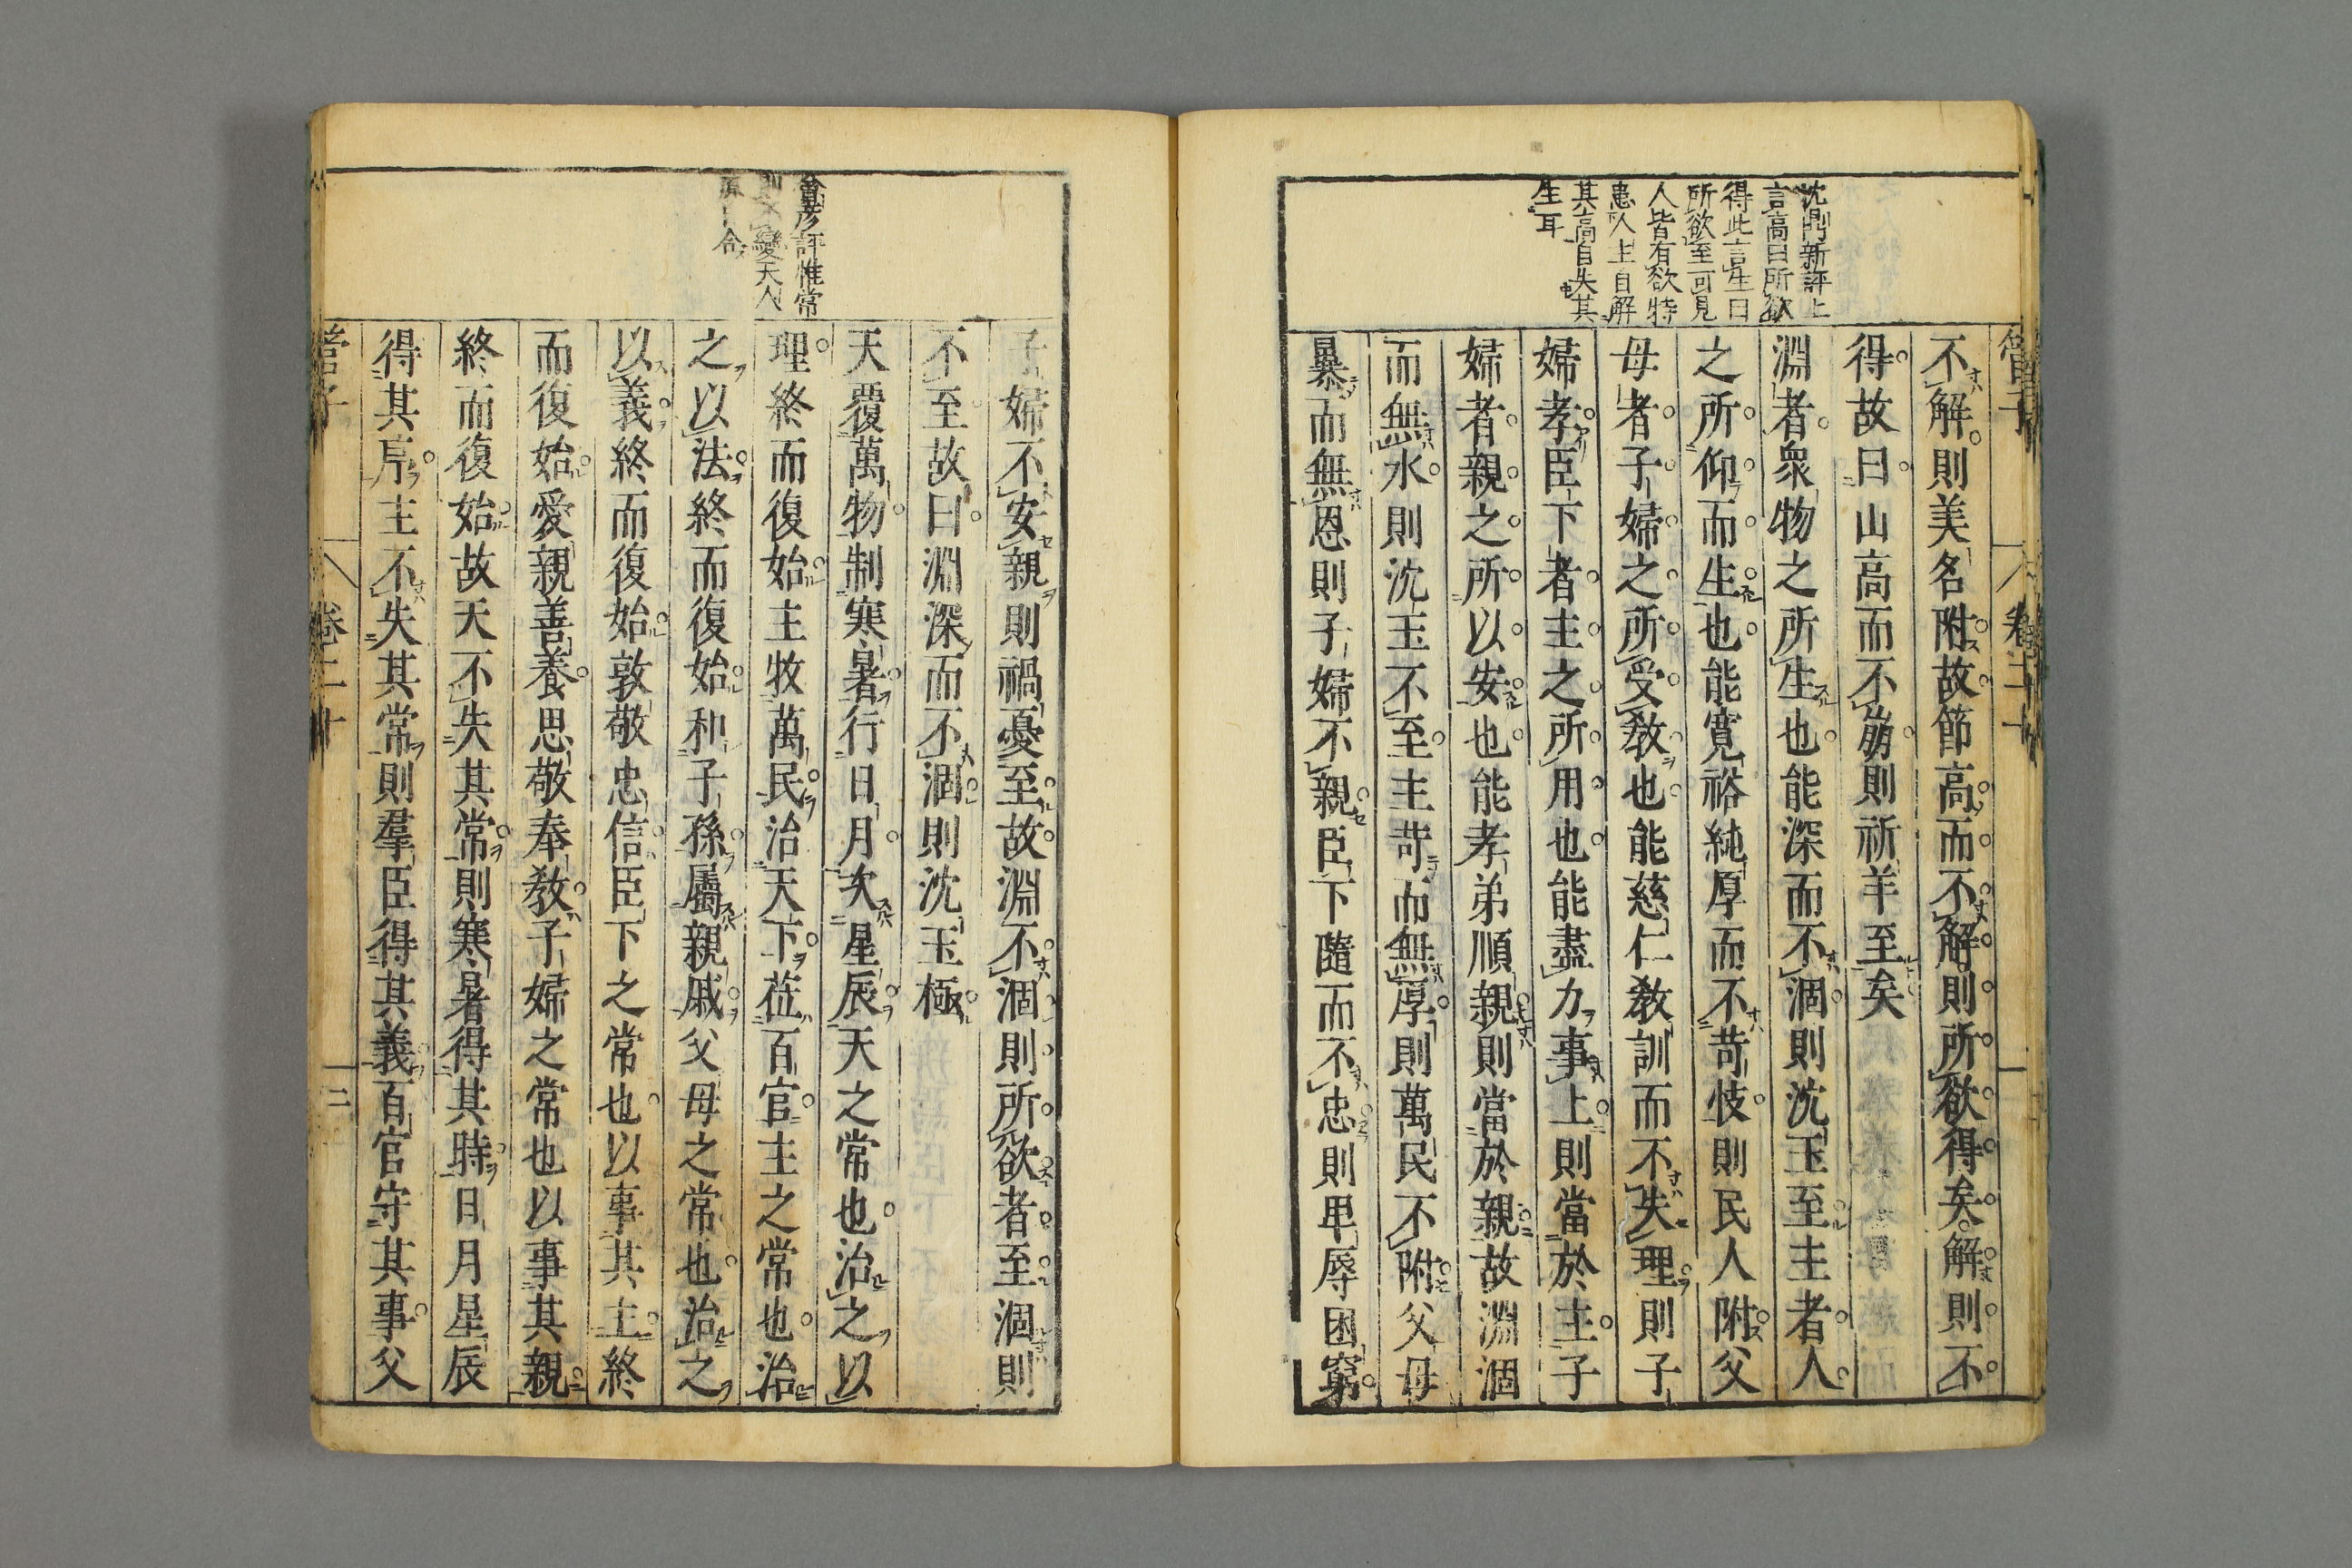 管子
卷二十
一
沈鼎新評上
言高曰所欲
得此言生曰
所欲至可見
人皆有欲特
患人上自解
其高自失其
生耳
不解則美名附故節高而不解則所欲得矣解則不
得故曰山高而不崩則祈羊至矣
淵者衆物之所生也能深而不涸則沈玉至主者人
之所仰而生也能寬裕純厚而不苛忮則民人附父
母者子婦之所受教也能慈仁教訓而不失理則子
婦孝臣下者主之所用也能盡力事上則當於主子
婦者親之所以安也能孝弟順親則當於親故淵涸
而無水則沈玉不至主苛而無厚則萬民不附父母
暴而無恩則子婦不親臣下隨而不忠則卑辱困窮
㑹彦評惟常
變天人
合
子婦不安親則禍憂至故淵不涸則所欲者至涸則
不至故曰淵深而不涸則沈玉極
天覆萬物制寒暑行日月次星辰天之常也治之以
理終而復始主牧萬民治天下莅百官主之常也治
之以法終而復始和子孫屬親戚父母之常也治之
以義終而復始敦敬忠信臣下之常也以事其主終
而復始愛親善養思敬奉教子婦之常也以事其親
終而復始故天不失其常則寒暑得其時日月星辰
得其序主不失其常則羣臣得其義百官守其事父
管子
卷二十
二